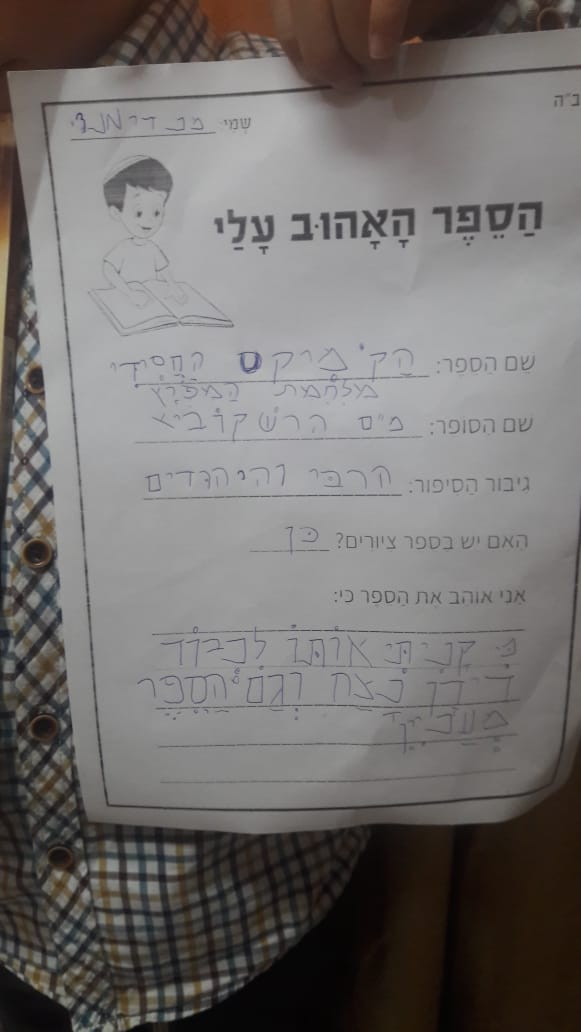 ב"ה
שְׁמִי:
הַסֵּפֶר הָאָהוּב עָלַי
שֵׁם הַסֵּפֶר: הַקֹמִיקס הַחֲסִידִי
מִלְחֶמֶת הַמִפְרָץ
שם הַסוֹפר: מ"ם הרשקוביץ
גיבור הַסיפור: הרבי והיהודים
האם יש בספר ציורים? כן
אֲנִי אוהב אֶת הַסֵפֶר כִּי:
כִּי קָנִיתִי אוֹתוֹ לִכְבוֹד
דִידָן נָצַח וְגַם הַסֵפֶר
מְעַנְיֵין